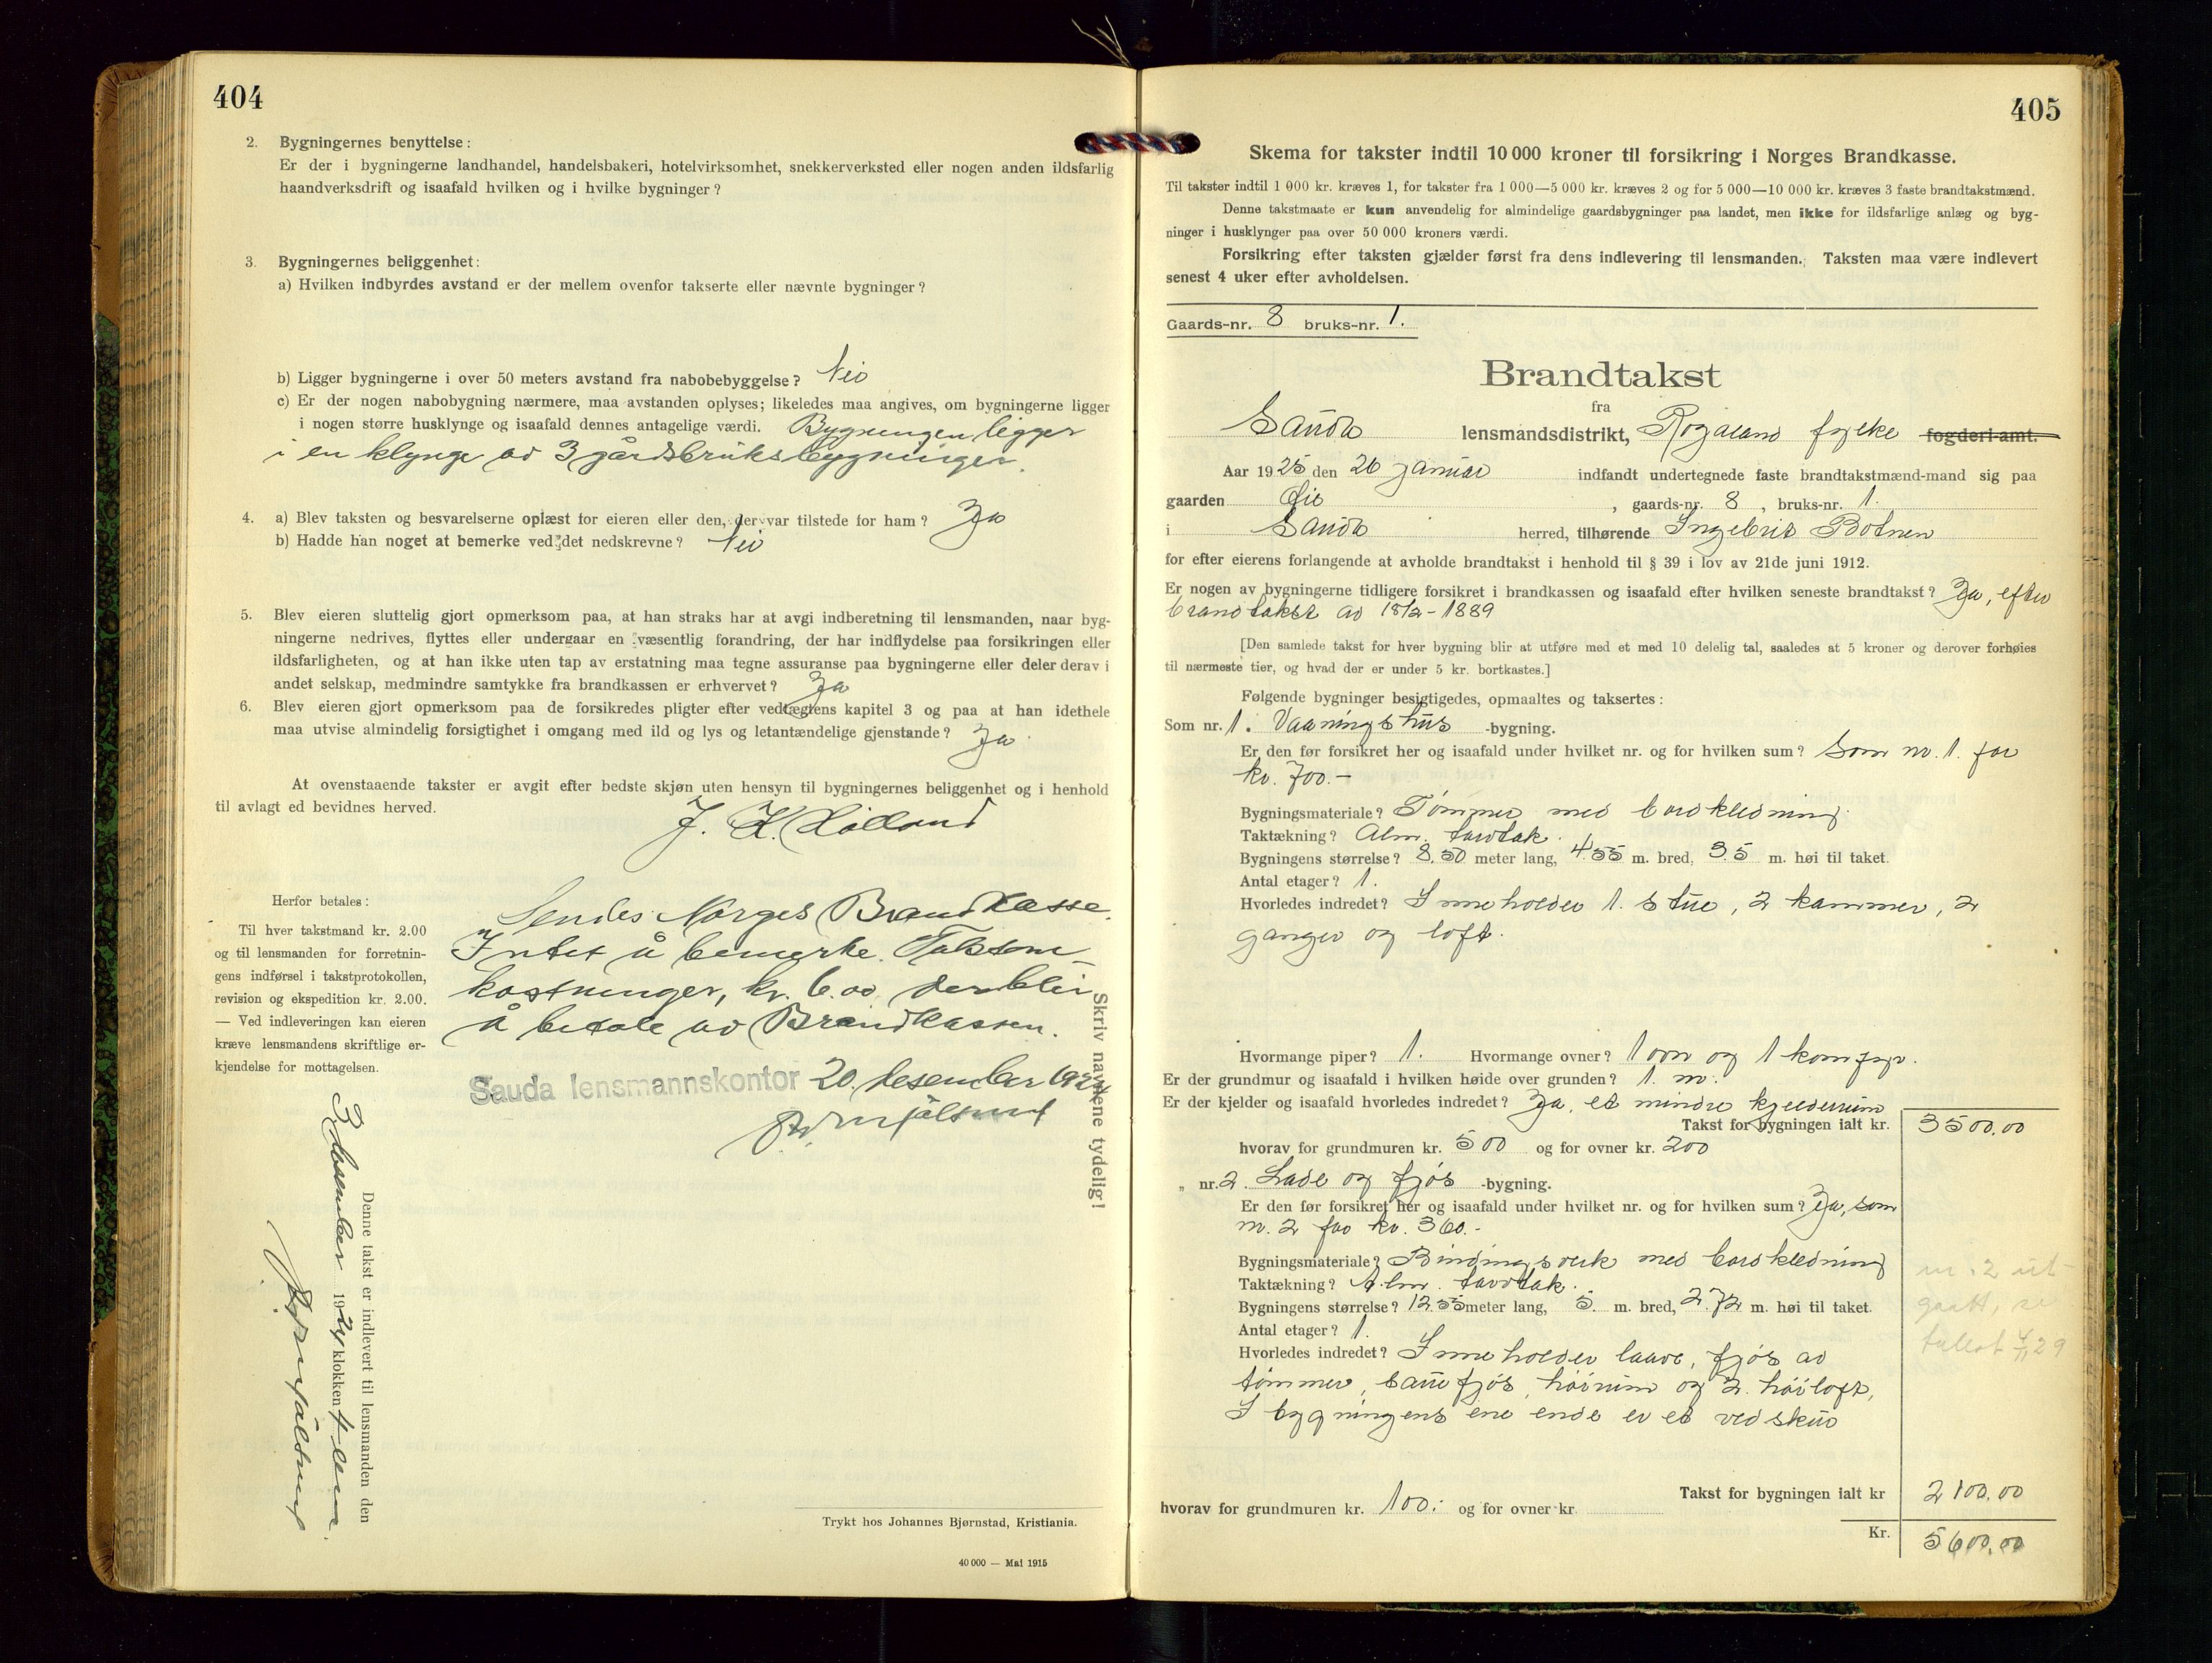 404
2. Bygningernes benyttelse:
Er der i bygningerne landhandel, handelsbakeri, hotelvirksomhet, snekkerverksted eller nogen anden ildsfarlig
haandverksdrift og isaafald hvilken og i hvilke bygninger?
3. Bygningernes beliggenhet:
a) Hvilken indbyrdes avstand er der mellem ovenfor takserte eller nævnte bygninger?
b) Ligger bygningerne i over 50 meters avstand fra nabobebyggelse? Nei
c) Er der nogen nabobygning nærmere, maa avstanden oplyses; likeledes maa angives, om bygningerne ligger
i nogen større husklynge og isaafald dennes antagelige værdi. Bygningen ligger
i en klynge av 3 gårdsbruksbygninger.
4. a) Blev taksten og besvarelserne oplæst for eieren eller den, der var tilstede for ham? Ja
b) Hadde han noget at bemerke ved det nedskrevne? Nei
5. Blev eieren sluttelig gjort opmerksom paa, at han straks har at avgi indberetning til lensmanden, naar byg-
ningerne nedrives, flyttes eller undergaar en væsentlig forandring, der har indflydelse paa forsikringen eller
ildsfarligheten, og at han ikke uten tap av erstatning maa tegne assuranse paa bygningerne eller deler derav i
andet selskap, medmindre samtykke fra brandkassen er erhvervet? Ja
6. Blev eieren gjort opmerksom paa de forsikredes pligter efter vedtægtens kapitel 3 og paa at han idethele
maa utvise almindelig forsigtighet i omgang med ild og lys og letantændelige gjenstande? Ja
At ovenstaaende takster er avgit efter bedste skjøn uten hensyn til bygningernes beliggenhet og i henhold
til avlagt ed bevidnes herved.
J. K.
Herfor betales:
Til hver takstmand kr. 2.00
og til lensmanden for forretnin-
gens indførsel i takstprotokollen,
revision og ekspedition kr. 2.00.
— Ved indleveringen kan eieren
kræve lensmandens skriftlige er-
kjendelse for mottagelsen.
Sendes Norges Brandkasse.
Intet å bemerke. Takstom-
kostninger, kr. 6.00, der blir
å betale av Brandkassen.
Sauda lensmannskontor 20. desember 1924
Skriv navnene tydelig!
Denne takst er indlevert til lensmanden den
3 desember 1924 klokken 4 em.
Trykt hos Johannes Bjørnstad, Kristiania.
40 000 — Mai 1915
405
Skema for takster indtil 10 000 kroner til forsikring i Norges Brandkasse.
Til takster indtil 1 000 kr. kræves 1, for takster fra 1 000—5 000 kr. kræves 2 og for 5 000—10 000 kr. kræves 3 faste brandtakstmænd.
Denne takstmaate er kun anvendelig for almindelige gaardsbygninger paa landet, men ikke for ildsfarlige anlæg og byg-
ninger i husklynger paa over 50 000 kroners værdi.
Forsikring efter taksten gjælder først fra dens indlevering til lensmanden. Taksten maa være indlevert
senest 4 uker efter avholdelsen.
Gaards-nr. 8 bruks-nr. 1.
Brandtakst
fra
Sauda lensmandsdistrikt, Rogaland fylke fogderi-amt.
Aar 1925 den 26 januar indfandt undertegnede faste brandtakstmænd-mand sig paa
gaarden Øie, gaards-nr. 8, bruks-nr. 1.
i Sauda herred, tilhørende Ingebrit Botnen
for efter eierens forlangende at avholde brandtakst i henhold til § 39 i lov av 21de juni 1912.
Er nogen av bygningerne tidligere forsikret i brandkassen og isaafald efter hvilken seneste brandtakst? Ja, efter
brandtakst av 18/2-1889
[Den samlede takst for hver bygning blir at utføre med et med 10 delelig tal, saaledes at 5 kroner og derover forhøies
til nærmeste tier, og hvad der er under 5 kr. bortkastes.]
Følgende bygninger besigtigedes, opmaaltes og taksertes:
Som nr. 1. Vaaningshus -bygning.
Er den før forsikret her og isaafald under hvilket nr. og for hvilken sum? Som nr. 1 for
kr. 700.-
Bygningsmateriale? Tømmer med bordkledning.
Taktækning? Alm. torvtak.
Bygningens størrelse? 8.50 meter lang, 4.55 m. bred, 3.5 m. høi til taket.
Antal etager? 1.
Hvorledes indredet? Inneholder 1 stue, 2 kammer, 2
ganger og loft.
Hvormange piper? 1. Hvormange ovner? 1 ovn og 1 komfyr.
Er der grundmur og isaafald i hvilken høide over grunden? 1. m.
Er der kjelder og isaafald hvorledes indredet? Ja, et mindre kjellerrum
Takst for bygningen ialt kr. 3500.00
hvorav for grundmuren kr. 500 og for ovner kr. 200
„ nr. 2 Lade og fjøs -bygning.
Er den før forsikret her og isaafald under hvilket nr. og for hvilken sum? Ja, som
nr. 2 for kr. 360.-
Bygningsmateriale? Bindingsverk med bordkledning
Taktækning? Alm. torvtak.
Bygningens størrelse? 12.55 meter lang, 5. m. bred, 2.72 m. høi til taket.
Antal etager? 1.
Hvorledes indredet? Inneholder laave, fjøs av
tømmer, sauefjøs, høirum og 2 høiloft,
I bygningens ene ende er et vedskur
nr. 2 ut-
gaatt, se
29
Takst for bygningen ialt kr 2100.00
hvorav for grundmuren kr. 100.- og for ovner kr.
Kr. 5600.00